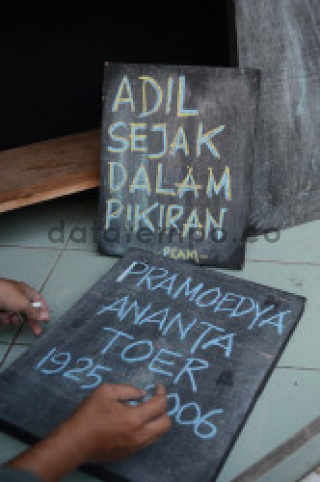 ADIL
SEJAK
DALAM
PIKIRAN
PRAM...
datatempo.co
PRAMOEDYA
ANANTA
TOER
1925 2006